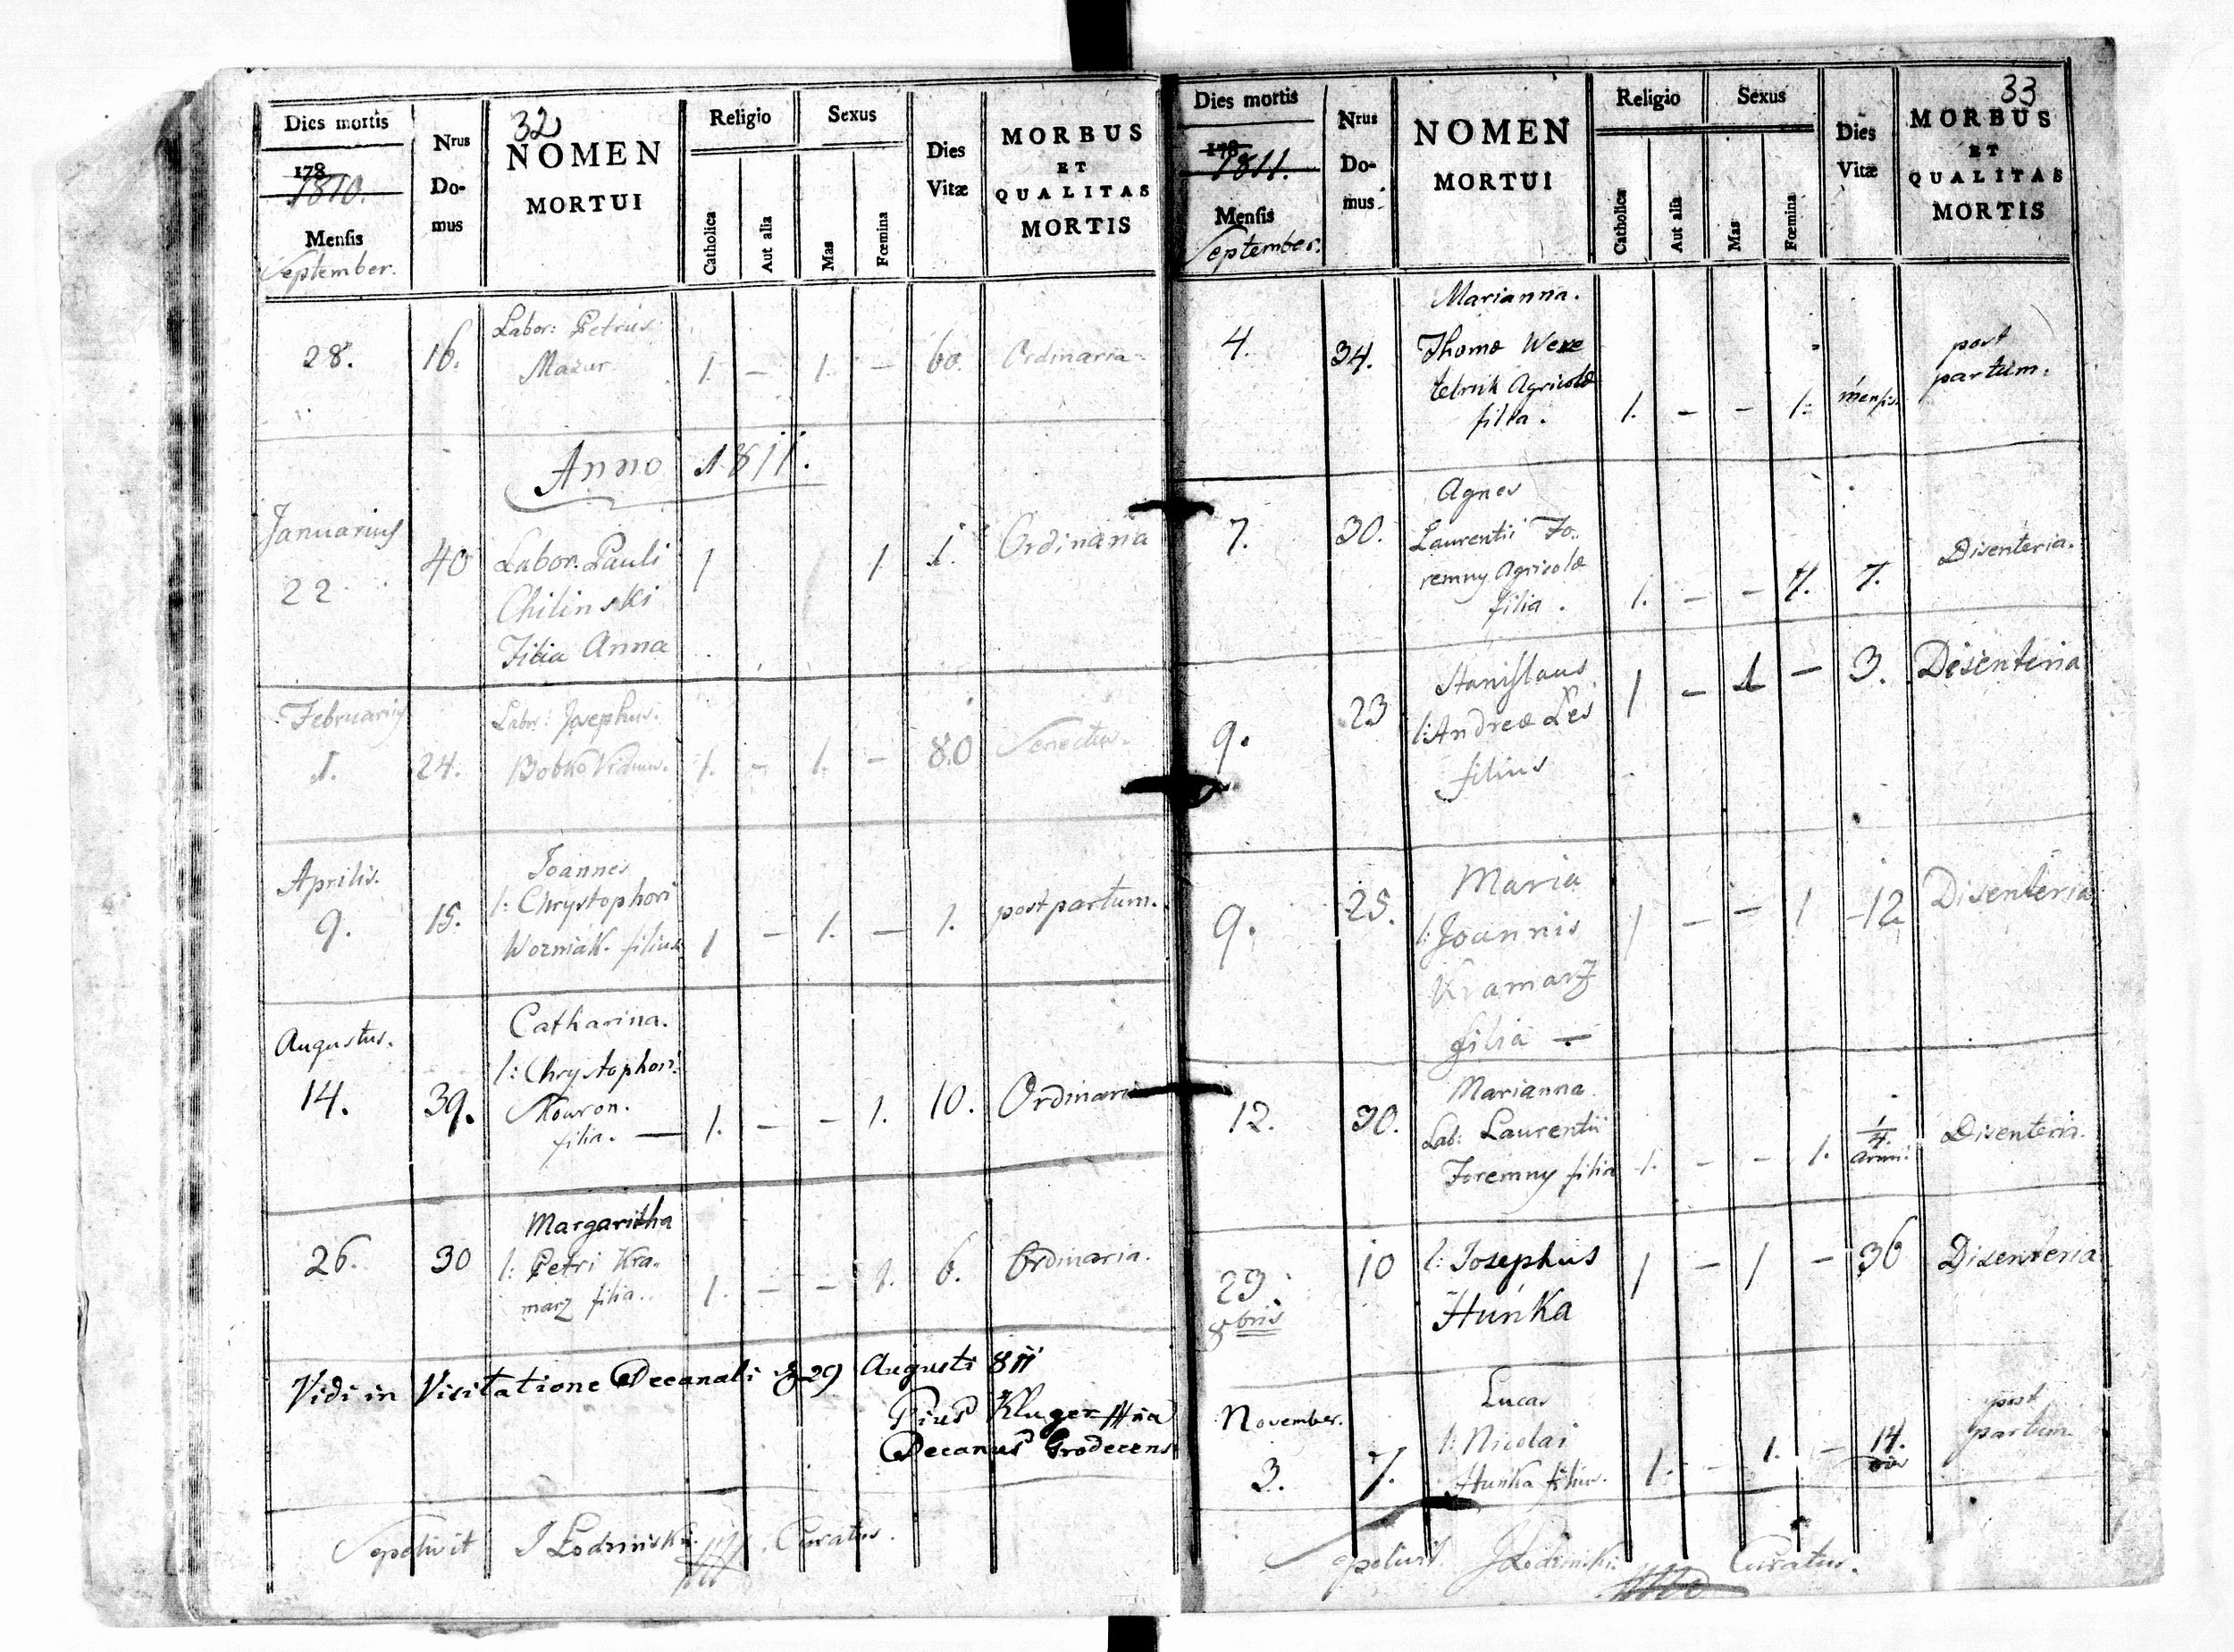 32
Dies mortis
178
1810.
Mensis
September.
Nrus
Do-
mus
NOMEN
MORTUI
Religio
Catholica
Aut alia
Sexus
Mas
Fœmina
Dies
Vitæ
MORBUS
ET
QUALITAS
MORTIS
Labor: Petrus
28. 16. Mazur 1. - 1. - 60. Ordinaria
Anno 1811.
Januarius
22 40 Labor. Pauli 1 1 1. Ordinaria
Chilinski
Filia Anna
Februarius
Labor: Josephus
1. 24. Bobko Viduus. 1. - 1. - 80 Senectus.
Aprilis.
Joannes
9. 15. l: Chrystophori
Wozniak. filius 1 - 1. - 1. post partum.
Augustus.
Catharina.
l: Chrystophori
14. 39. Nowron.
filia. — 1. - - 1. 10. Ordinaria
Margaritha
26. 30 l: Petri Kra-
marz filia.. 1. - - 1. 6. Ordinaria.
Vidi in Visitatione Decanali 29 Augusti 811
Pius Kluger
Decanus Grodecens
Sepelivit J Lodzinski Curatus.
33
Dies mortis
178
1811.
Mensis
September.
Nrus
Do-
mus
NOMEN
MORTUI
Religio
Catholica
Aut alia
Sexus
Mas
Fœmina
Dies
Vitæ
MORBUS
ET
QUALITAS
MORTIS
Marianna.
4. 34. Thomæ post
Agricolæ partum.
filia. 1. - - 1. mensis
Agnes
7. 30. Laurentii Fo..
remny Agricolæ Disenteria.
filia. 1. - - 1. 7.
Stanislaus 1 - 1 - 3. Disenteria
9. 23 l: Andreæ Les
filius
Maria
9. 25. l: Joannis 1 - - 1 12 Disenteria
Kramarz
filia —
Marianna
12. 30. Lab: Laurentii
Foremny filia 1. - - 1. 1/4 anni Disenteria.
23 10 l: Josephus 1 - 1 - 36 Disenteria
8bris Hunka
November.
Lucas post
l: Nicolai partum
3. 7. Hunka filius. 1. - 1. - 14.
Sepelivit J Lodzinski Curatus.